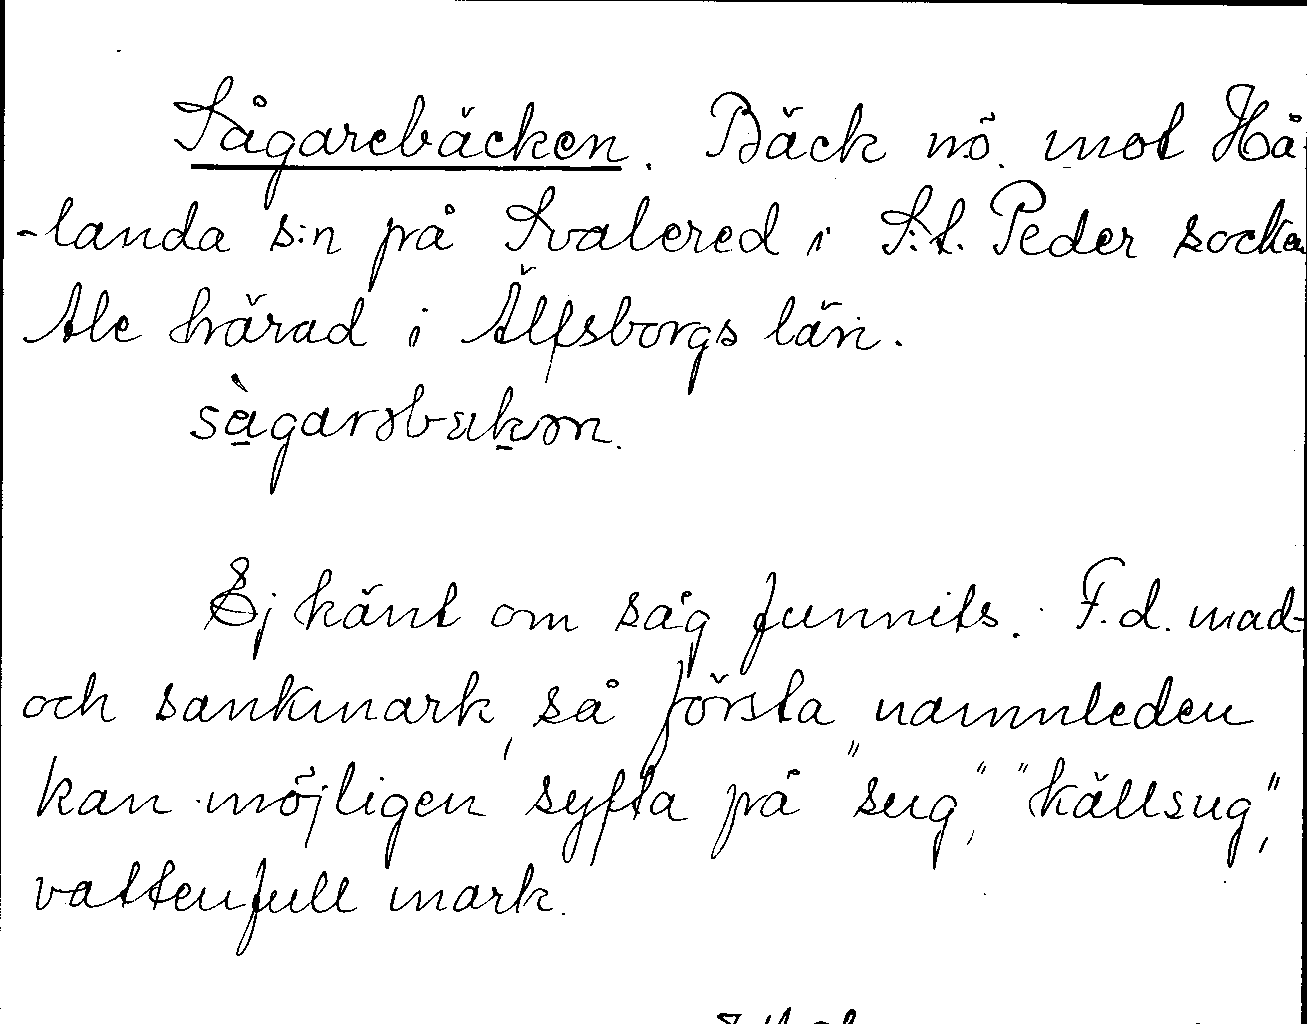 Sågarebäcken. Bäck nö. mot Hå-
-landa s:n på Svalered i S:t. Peder socken
Ale härad i Älfsborgs län.
sàgarəbäkən.
Ej känt om såg funnits. F.d. mad-
och sankmark, så första namnleden
kan möjligen syfta på "sug", "källsug",
vattenfull mark.